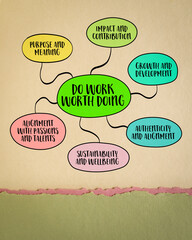 IMPACT AND
CONTRIBUTION
PURPOSE AND
MEANING
GROWTH AND
DEVELOPMENT
DO WORK
WORTH DOING
ALIGNMENT
WITH PASSIONS
AND TALENTS
AUTHENTICITY
AND ALIGNMENT
SUSTAINABILITY
AND WELLBEING